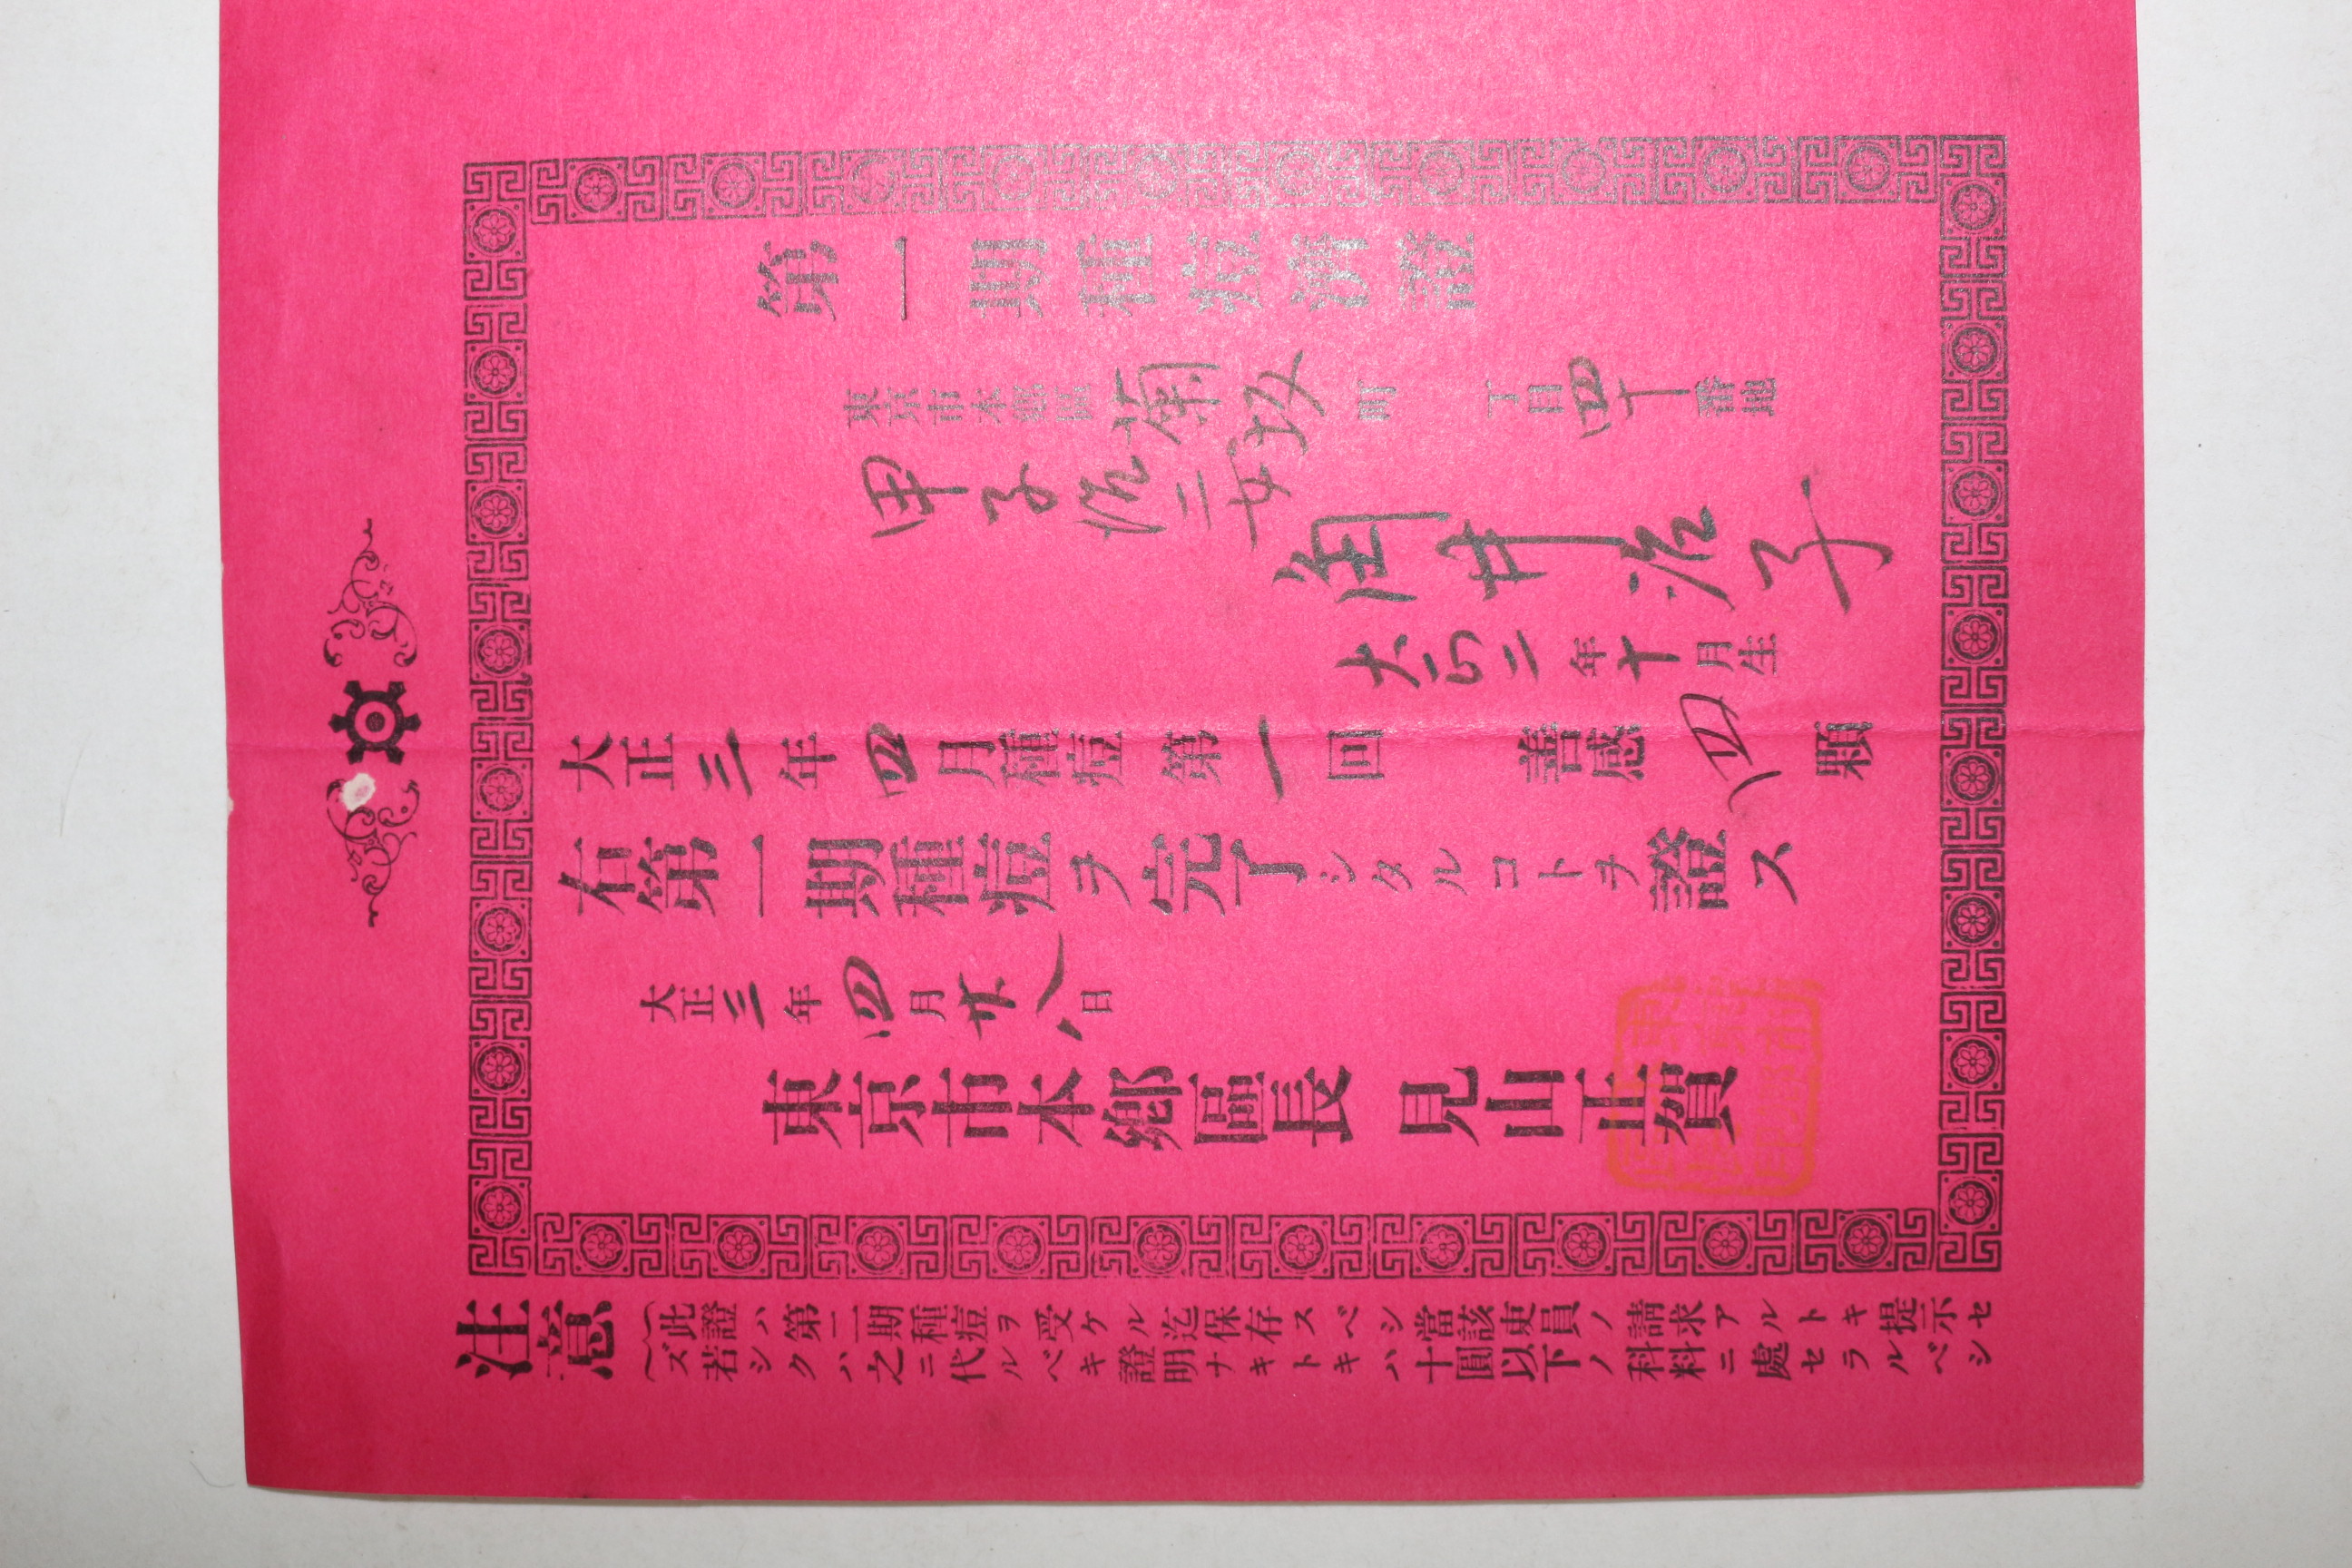 第一期種痘濟證
東京市本郷區菊坂町 丁目四十番地
甲子治二女
向井治子
大正二年十月生
大正三年四月種痘第一回 善感四顆
右第一期種痘ヲ完了シタルコトヲ證ス
大正三年四月廿八日
東京市本郷區長 見山正賀
注意
此證ハ第二期種痘ヲ受ケル迄保存スベシ當該吏員ノ請求アルトキ提示セ
ズ若シクハ之ニ代ルベキ證明ナキトキハ十圓以下ノ科料ニ處セラルベシ